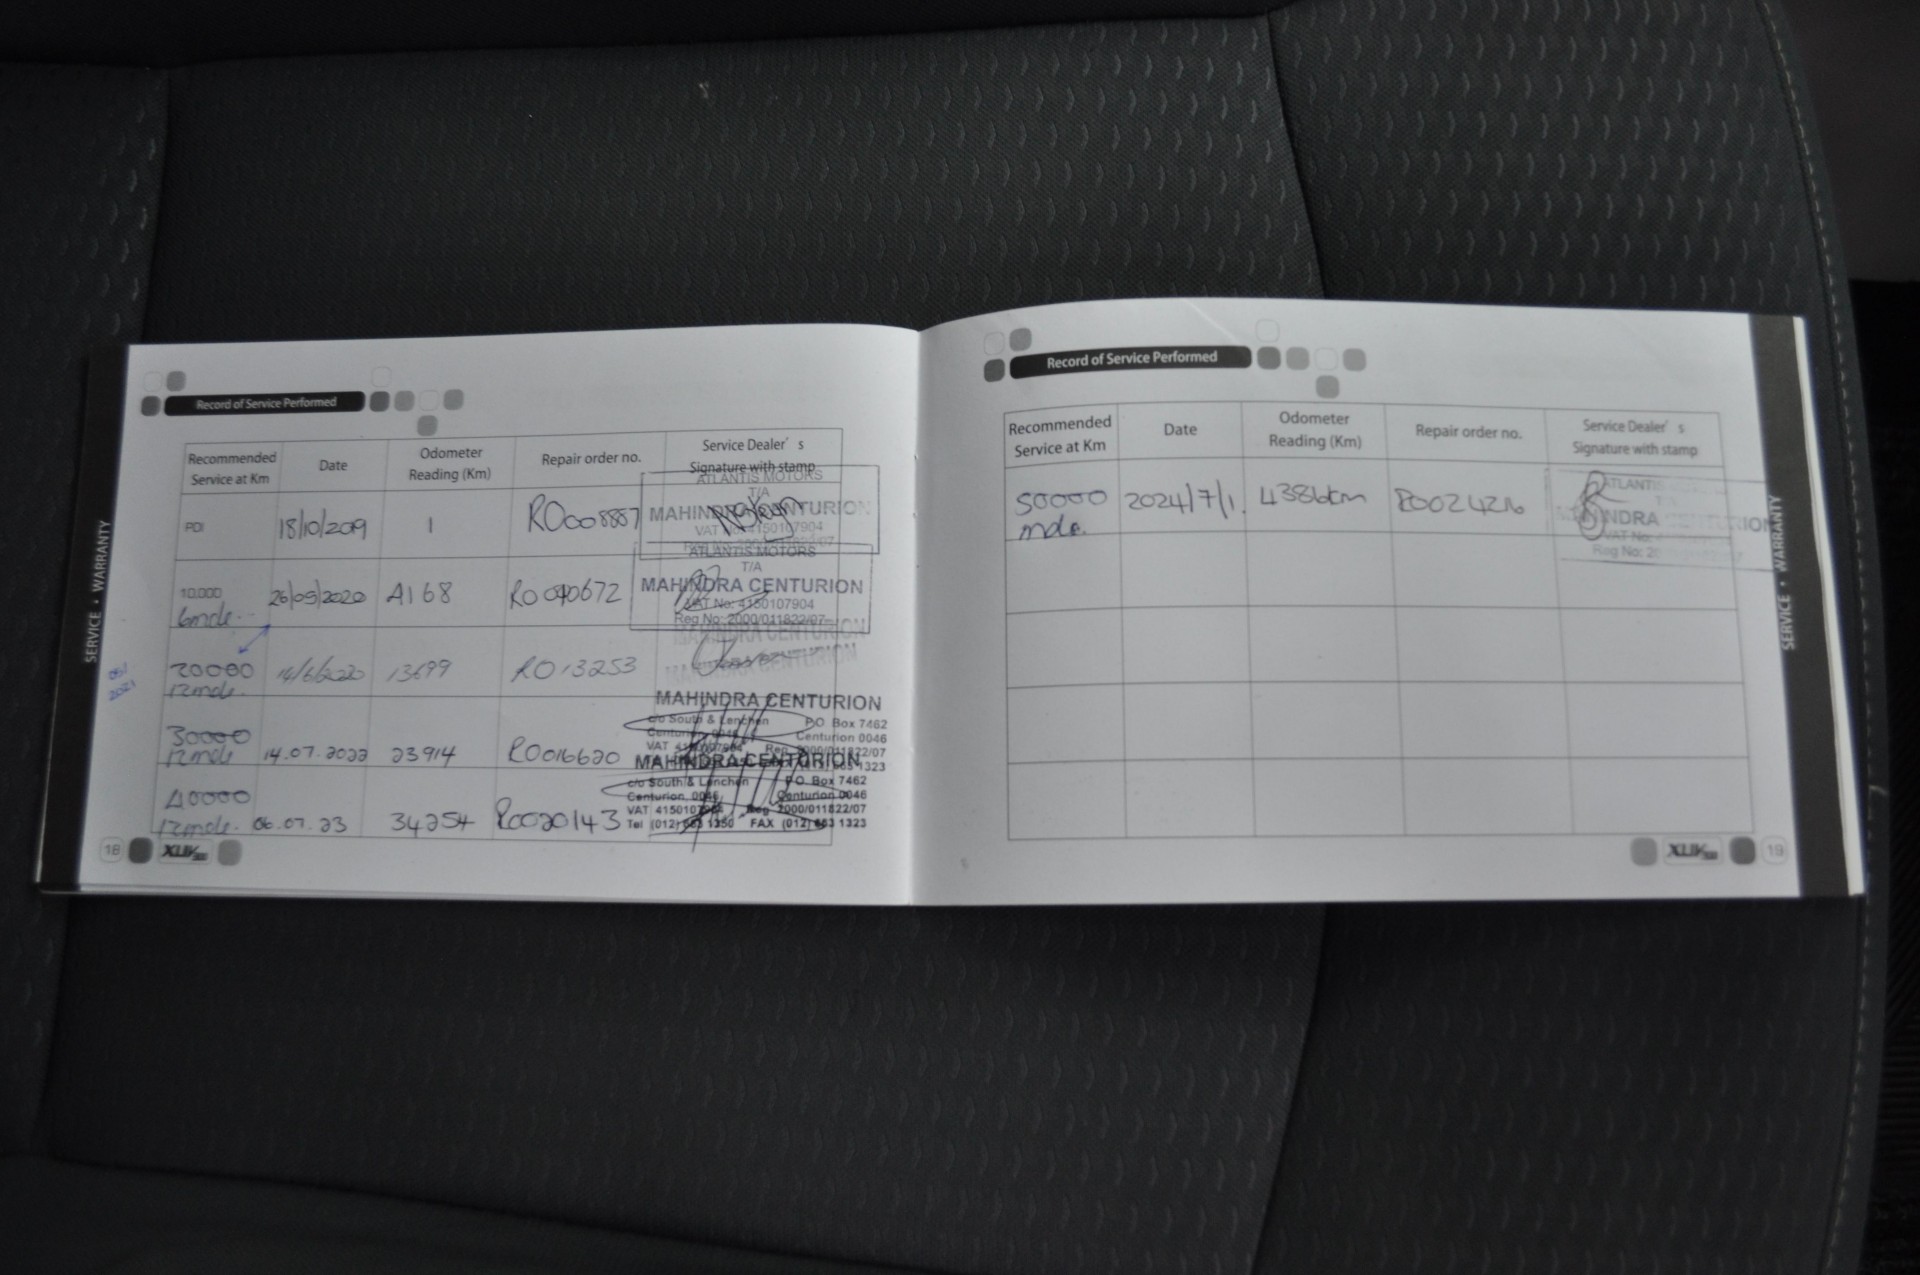 Record of Service Performed
Recommended Service at Km Date Odometer Reading (Km) Repair order no. Service Dealer's Signature with stamp
PDI 18/10/2019 1 RO008887
ATLANTIS MOTORS
T/A
MAHINDRA CENTURION
VAT No: 4150107904
10.000 6mde. 26/05/2020 A168
ATLANTIS MOTORS
T/A
MAHINDRA CENTURION
VAT No: 4150107904
Reg No: 2000/011822/07
20000 12mde. 14/6/2020 13699 RO13253
MAHINDRA CENTURION
MAHINDRA CENTURION
2021
30000 12mde 14.07.2022 23914 RO016620
MAHINDRA CENTURION
c/o South & Lenchen P.O. Box 7462
Centurion 0046 Centurion 0046
VAT 4150107904 Reg 2000/011822/07
40000 12mde. 06.07.23 34254 RO020143
MAHINDRA CENTURION
c/o South & Lenchen P.O. Box 7462
Centurion, 0046 Centurion 0046
VAT 4150107904 Reg 2000/011822/07
Tel (012) 663 1350 FAX (012) 663 1323
SERVICE • WARRANTY
18 XUV500
Record of Service Performed
Recommended Service at Km Date Odometer Reading (Km) Repair order no. Service Dealer's Signature with stamp
50000 mde. 2024/7/1. RO024216
ATLANTIS
MAHINDRA CENTURION
VAT No:
Reg No:
SERVICE • WARRANTY
XUV500 19